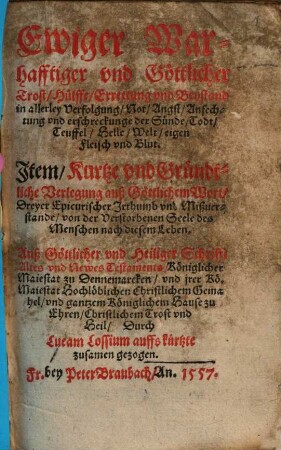 Ewiger War-
hafftiger vnd Göttlicher
Trost / Hülffe / Errettung vnd Beystand
in allerley Verfolgung / Not / Angst / Anfech-
tung vnd erschreckunge der Sünde / Todt /
Teuffel / Helle / Welt / eigen
Fleisch vnd Blut.
Item / Kurtze vnd Gründt-
liche Verlegung auß Göttlichem Wort /
Dreyer Epicurischer Jrrthumb vnd Misuer-
stande / von der Verstorbenen Seele des
Menschen nach diesem Leben.
Auß Göttlicher vnd Heiliger Schrifft /
Altes vnd Newes Testamentes / Königlicher
Maiestat zu Dennemarcken / vnd jrer Kö.
Maiestat Hochlöblichen Christlichem Gema-
hel / vnd gantzem Königlichem Hause zu
Ehren / Christlichem Trost vnd
Heil / Durch
Lucam Lossium auffs kürtzte
zusamen gezogen.
Fr. bey Peter Braubach / An. 1557.